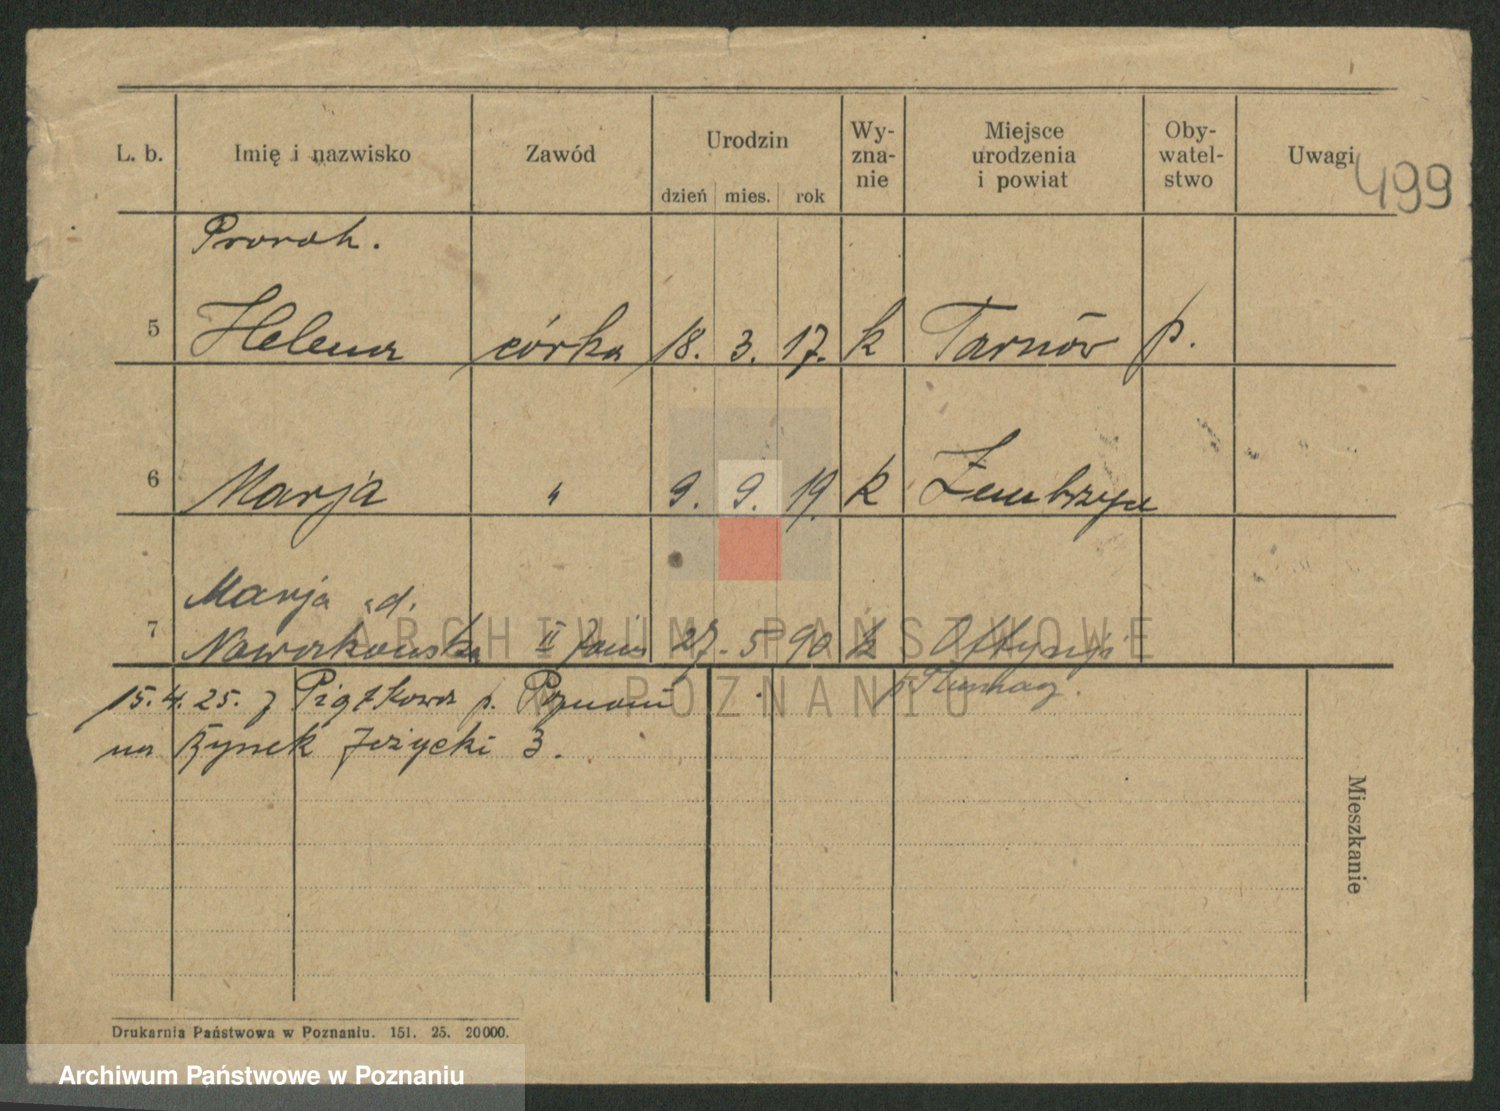 L. b. Imię i nazwisko Zawód Urodzin dzień mies. rok Wy-zna-nie Miejsce urodzenia i powiat Oby-watel-stwo Uwagi 499
Prorok.
5 Helena córka 18. 3. 17. k Tarnów p.
6 Marja " 9. 9. 19. k Zembrzyce
Marja d.
7 Nowakowska II 27. 5 90 k Ottynji
p. Tłumacz.
15. 4. 25. z Piątkowa p. Poznań
na Rynek Jeżycki 3.
Mieszkanie
Drukarnia Państwowa w Poznaniu. 151. 25. 20000.
ARCHIWUM PAŃSTWOWE
W POZNANIU
Archiwum Państwowe w Poznaniu